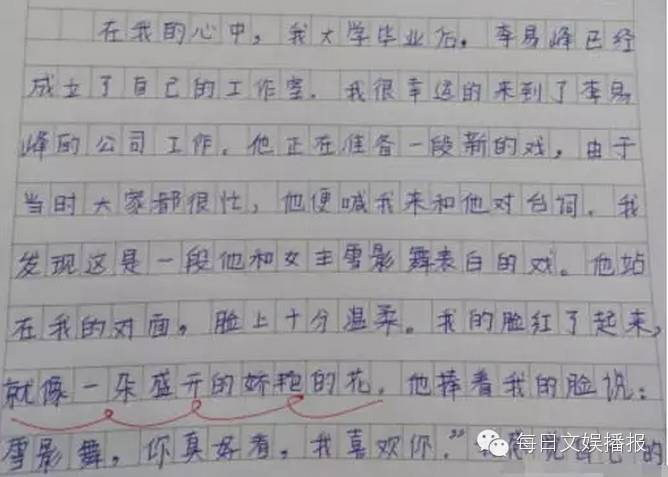 在我的心中，我大学毕业后，李易峰已经
成立了自己的工作室．我很幸运的来到了李易
峰的公司工作．他正在准备一段新的戏，由于
当时大家都很忙，他便喊我来和他对台词．我
发现这是一段他和女主雪影舞表白的戏。他站
在我的对面，脸上十分温柔。我的脸红了起来，
就像一朵盛开的娇艳的花．他捧着我的脸说：
雪影舞，你真好看，我喜欢你．”
每日文娱播报